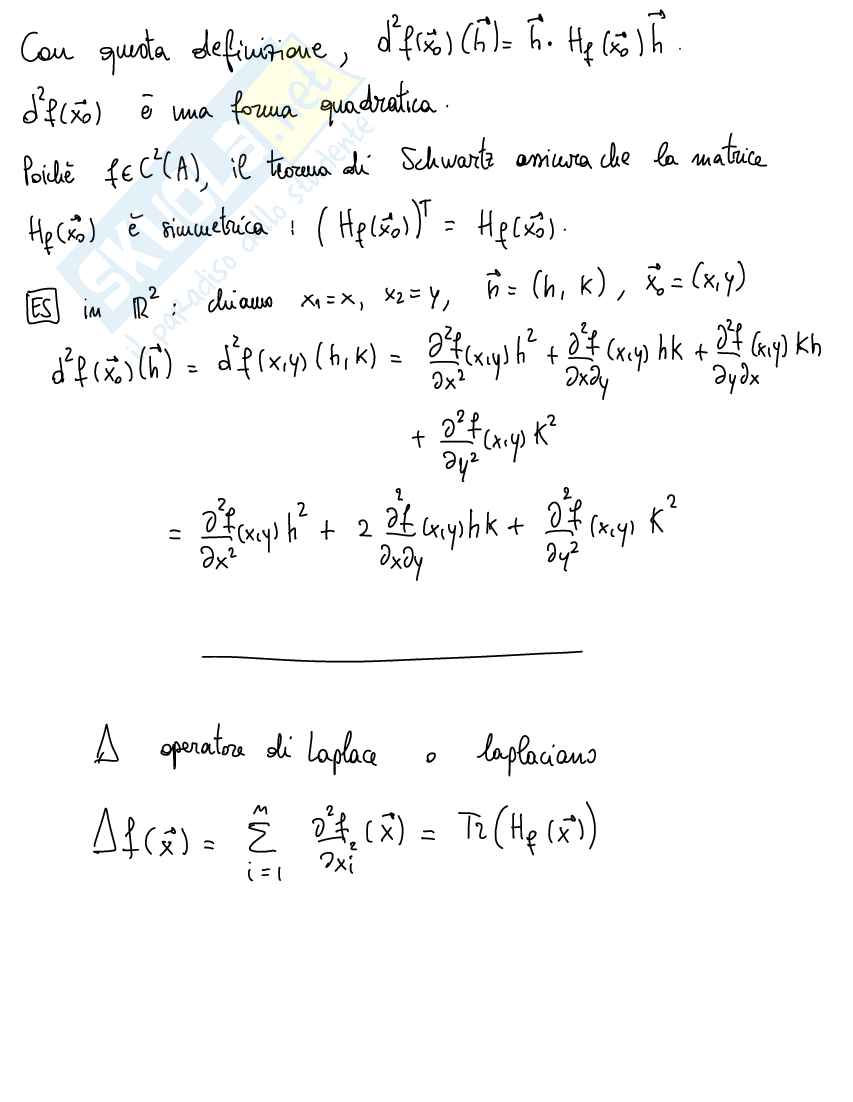 Con questa definizione, d²f(x⃗₀)(h⃗) = h⃗ · H_f(x⃗₀)h⃗.
d²f(x⃗₀) è una forma quadratica.
Poichè f∈C²(A), il teorema di Schwartz assicura che la matrice
H_f(x⃗₀) è simmetrica : (H_f(x⃗₀))ᵀ = H_f(x⃗₀).
ES in ℝ² : chiamo x₁=x, x₂=y, h⃗ = (h, k), x⃗₀ = (x,y)
d²f(x⃗₀)(h⃗) = d²f(x,y)(h,k) = ∂²f/∂x² (x,y) h² + ∂²f/∂x∂y (x,y) hk + ∂²f/∂y∂x (x,y) kh
+ ∂²f/∂y² (x,y) k²
= ∂²f/∂x² (x,y) h² + 2 ∂²f/∂x∂y (x,y) hk + ∂²f/∂y² (x,y) k²
Δ operatore di Laplace o laplaciano
Δf(x⃗) = Σ_{i=1}^{n} ∂²f/∂xᵢ² (x⃗) = Tr(H_f(x⃗))
SKUOLA.net
il paradiso dello studente